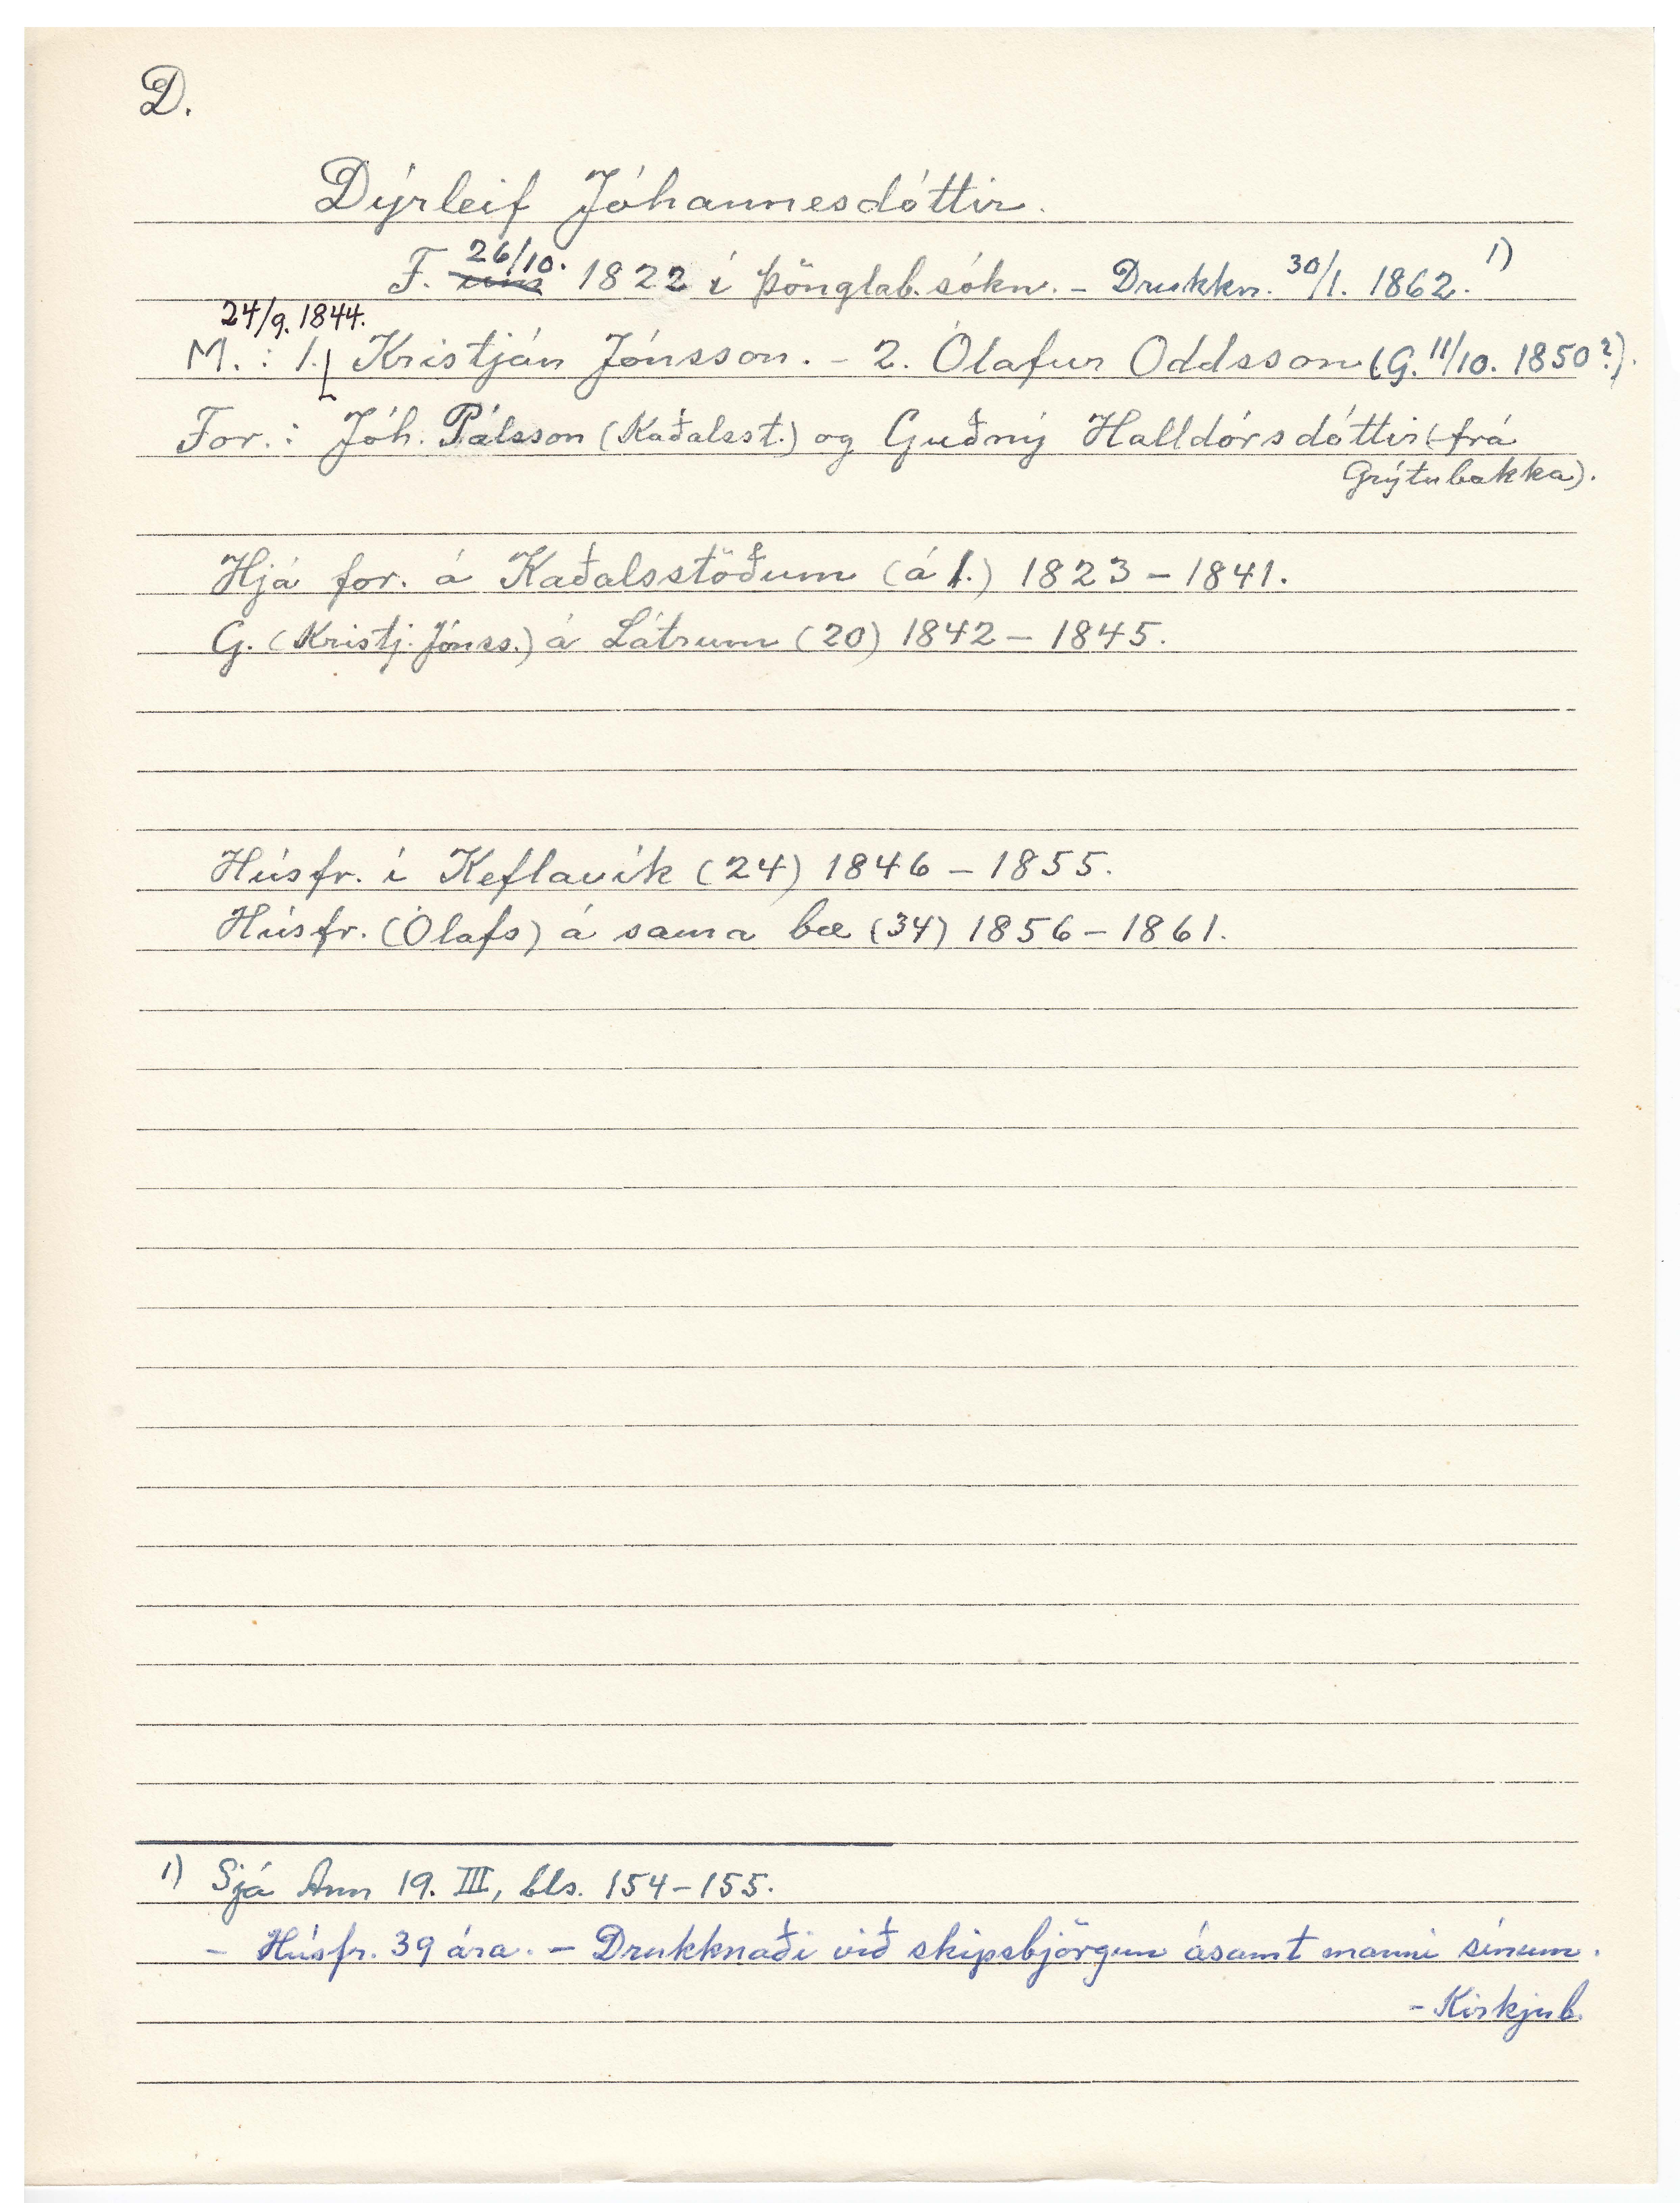 D.
Dýrleif Jóhannesdóttir.
F. 26/10. 1822 í Þönglab.sókn. - Drukkn. 30/1. 1862. 1)
24/9. 1844.
M. : 1. Kristján Jónsson. - 2. Ólafur Oddsson (G. 11/10. 1850?).
For. : Jóh. Pálsson (Kaðalsst.) og Guðný Halldórsdóttir (frá
Grýtubakka).
Hjá for. á Kaðalsstöðum (á 1.) 1823 - 1841.
G. (Kristj. Jónss.) á Látrum (20) 1842 - 1845.
Húsfr. í Keflavík (24) 1846 - 1855.
Húsfr. (Ólafs) á sama bæ (34) 1856 - 1861.
1) Sjá Ann 19. III, bls. 154-155.
- Húsfr. 39 ára. - Drukknaði við skipsbjörgun ásamt manni sínum.
- Kirkjub.